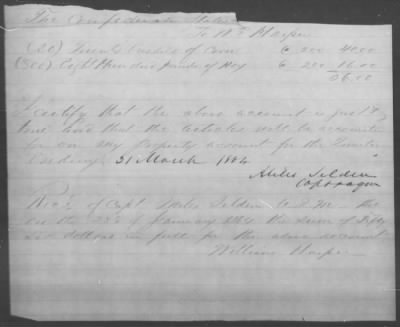 The Confederate States
To Wm Harper
(20) Twenty bushels of Corn @ 2.00 40.00
(800) Eight Hundred pounds of Hay @ 2.00 16.00
56.00
I certify that the above account is just &
true and that the articles will be accounted
for on my property account for the Quarter
Ending 31 March 1864
Miles Selden
Capt &
Rec'd of Capt Miles Selden A. Q. M.
on the 23d of January 1864 the sum of Fifty
Six dollars in full for the above account
William Harper